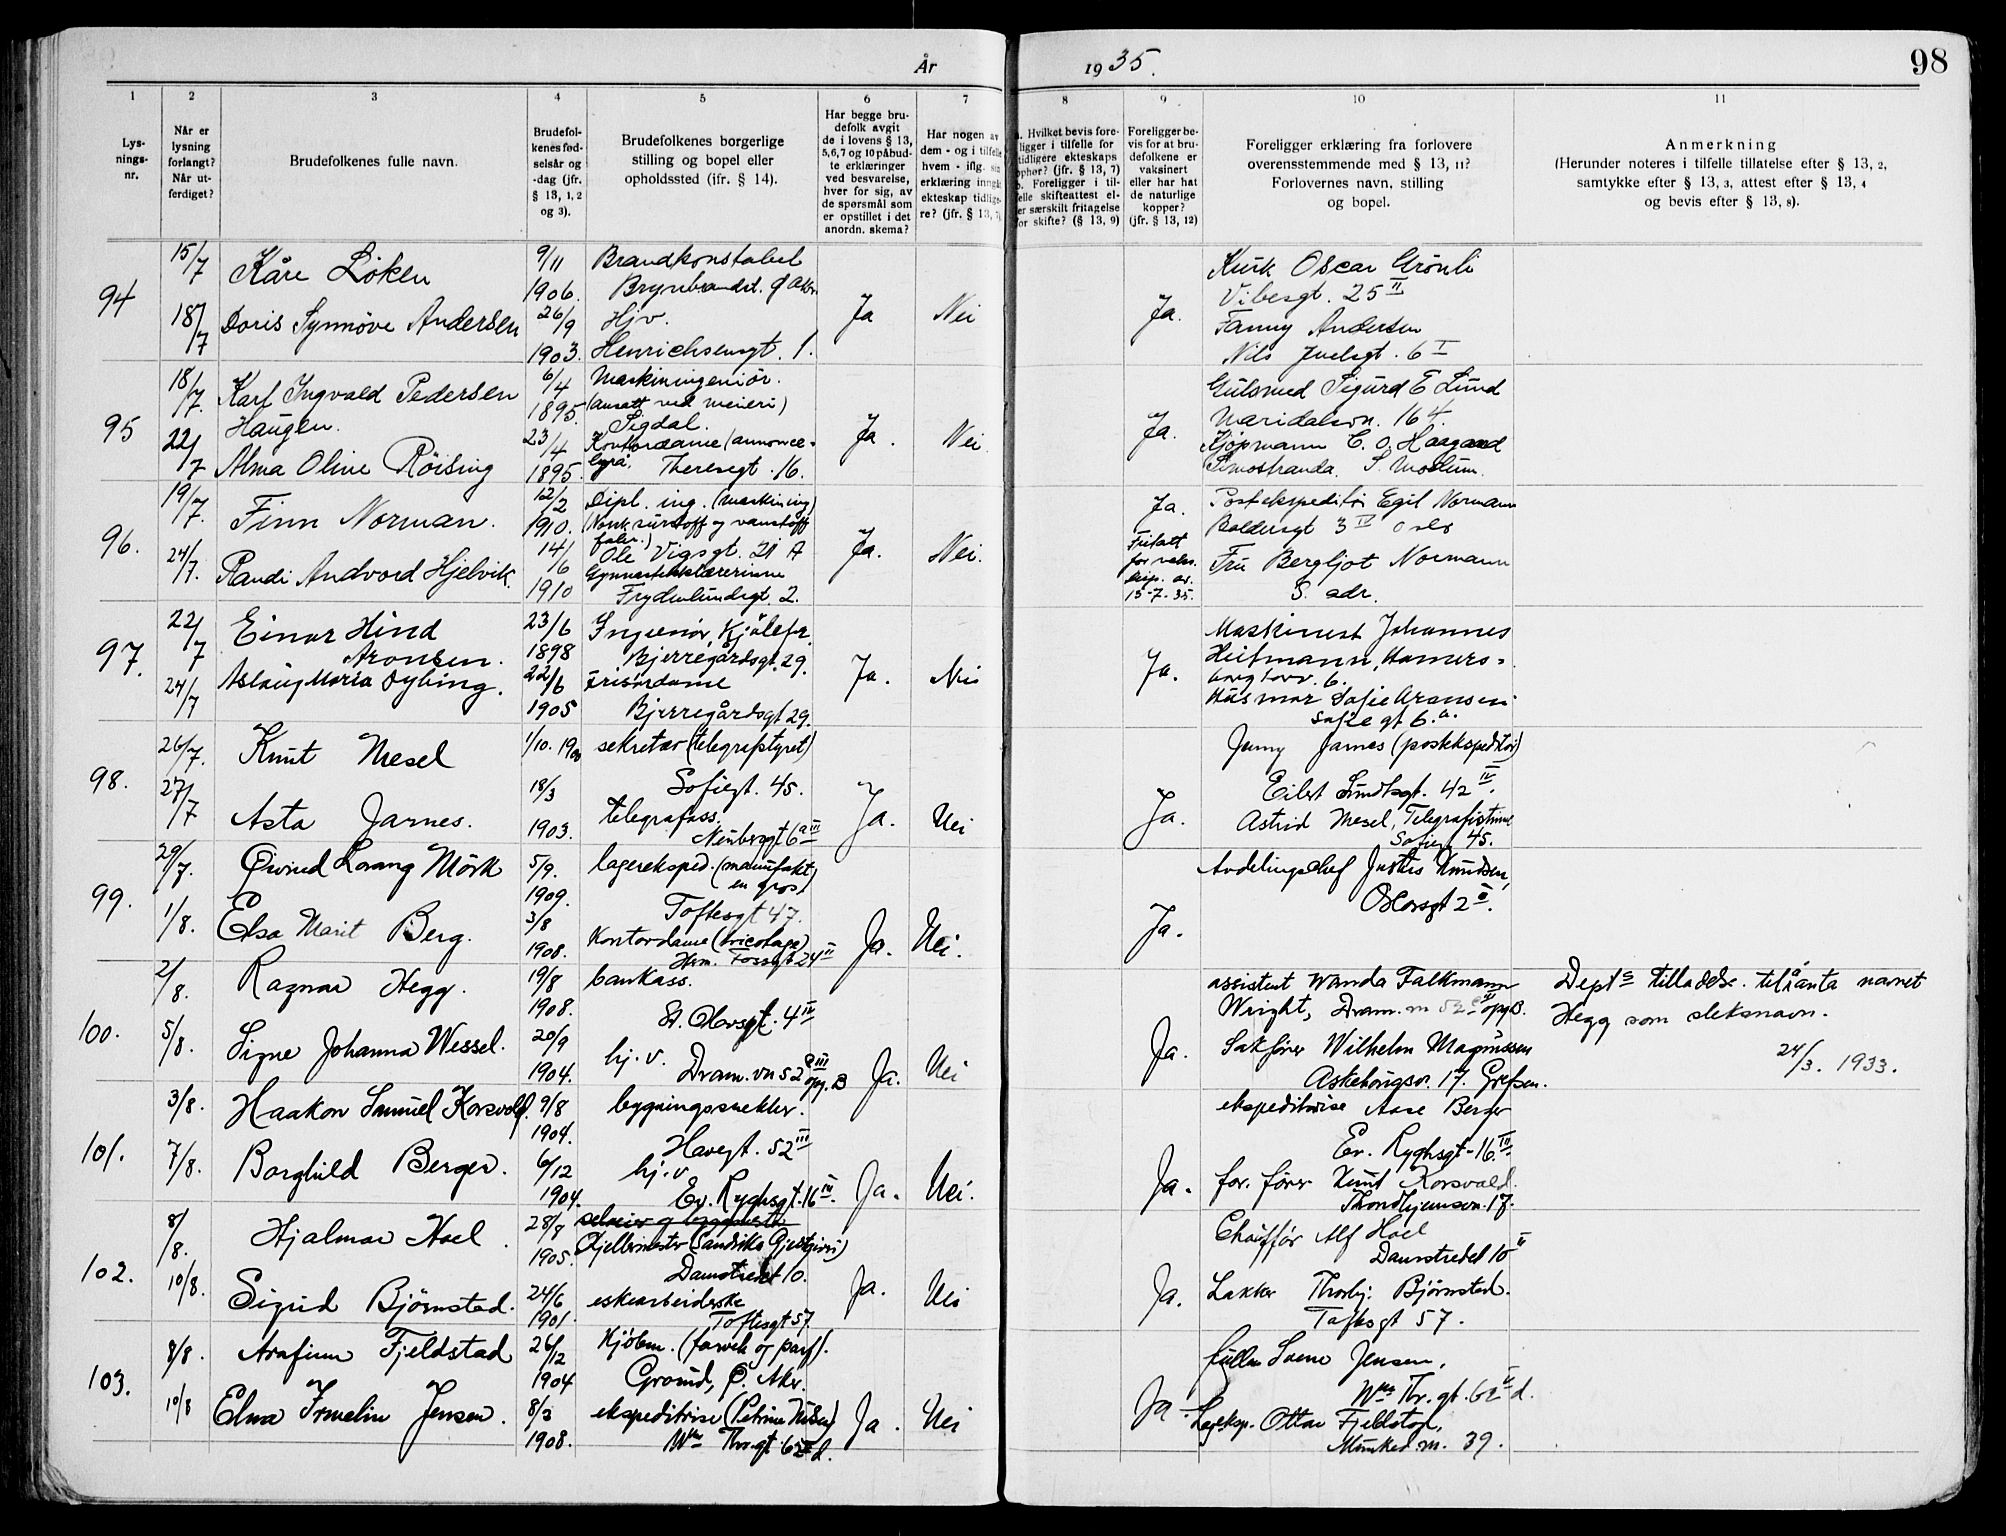 År 1935. 98
1 2 3 4 5 6 7 8 9 10 11
Lys-
nings-
nr.
Når er
lysning
forlangt?
Når ut-
ferdiget?
Brudefolkenes fulle navn.
Brudefol-
kenes fød-
selsår og
-dag (jfr.
§ 13, 1, 2
og 3).
Brudefolkenes borgerlige
stilling og bopel eller
opholdssted (jfr. § 14).
Har begge bru-
defolk avgit
de i lovens § 13,
5,6,7 og 10 påbud-
te erklæringer
ved besvarelse,
hver for sig, av
de spørsmål som
er opstillet i det
anordn. skema?
Har nogen av
dem - og i tilfelle
hvem - iflg. sin
erklæring inngå
ekteskap tidlige
re? (jfr. § 13, 7)
a. Hvilket bevis fore-
ligger i tilfelle for
tidligere ekteskaps
ophør? (jfr. § 13, 7)
b. Foreligger i til-
felle skifteattest el-
ler særskilt fritagelse
for skifte? (§ 13, 9)
Foreligger be-
vis for at bru-
defolkene er
vaksinert
eller har hat
de naturlige
kopper?
(jfr. § 13, 12)
Foreligger erklæring fra forlovere
overensstemmende med § 13, 11?
Forlovernes navn, stilling
og bopel.
Anmerkning
(Herunder noteres i tilfelle tillatelse efter § 13, 2,
samtykke efter § 13, 3, attest efter § 13, 4
og bevis efter § 13, 8).
94
15/7
18/7
Kåre Løken
Doris Synnöve Andersen
9/11
1906.
26/9
1903.
Brandkonstabel
Hjv.
Henrichsensgt. 1.
Ja
Nei
Ja.
Oscar Grönli
Vibesgt. 25 II
Fanny Andersen
Nils Juelsgt. 6 I
95
18/7.
22/7
Karl Ingvald Pedersen
Haugen.
Alma Oline Röising
6/4
1895.
23/4
1895.
Maskiningeniör.
(Ansatt ved meieri)
Sigdal.
Kontordame (annonce-
byrå. Theresegt. 16.
Ja.
Nei
Ja.
Gulsmed Sigurd E Lund
Maridalsvn. 164
Kjøpmann C. O. Haagaad
Simostranda. S. Modum.
96.
19/7.
24/7.
Finn Norman.
Randi Andvord Hjelvik
12/2
1910.
14/6
1910
Dipl. ing. (maskining)
(Norsk surstoff og vanstoff
fabr.)
Ole Vigsgt. 21 A
Gymnastikklærerinne
Frydenlundsgt. 2.
Ja.
Nei.
Ja.
Fritatt
for vaks.
15-7-35.
Postekspeditör Egil Normann
Baldersgt 3 IV Oslo
Fru Bergljot Normann
S. adr.
97.
22/7
24/7
Einar Hind
Aronsen.
Aslaug Maria Dybing.
23/6
1898
22/6
1905
Ingeniör, Kjölefa.
Bjerregårdsgt. 29.
Frisördame
Bjerregårdsgt 29.
Ja.
Nei
Ja.
Maskinist Johannes
Heitmann, Hamers-
borg torv. 6.
Husmor Sofie Aronsen
Sofie gt 6. a.
98.
26/7.
27/7
Knut Mesel
Asta Jarnes.
1/10. 1900
18/3
1903.
sekretær (telegrafstyret)
Sofiegt. 45.
telegrafass.
Neubergt 6 a III
Ja.
Nei
Ja.
Jenny Jarnes (postekspeditör)
Eilert Sundtsgt. 42 IV.
Astrid Mesel, Telegrafistinne
Sofiegt 45.
99.
29/7.
1/8.
Øivind Lorang Mörk
Elsa Marit Berg.
5/9.
1909.
3/8
1908.
lagereksped. (manufakt.
en gros)
Toftesgt 47.
Kontordame (tricotage)
Hrm. Fossgt 24 II
Ja.
Nei.
Ja.
Avdelingschef Justus Knudsen,
Oslosgt 2 II.
100.
2/8.
5/8.
Ragnar Hegg.
Signe Johanna Wessel.
19/8
1908.
20/9
1904.
bankass.
St. Olavsgt. 4 IV
hj. v.
Dram. vn 52 e III
opg. B
Ja.
Nei
Ja.
assistent Wanda Falkmann
Wright, Dram. vn 52 opg B.
Sakförer Wilhelm Magnussen
Askehaugsv. 17. Grefsen.
Dept.s tilladelse. til å anta navnet
Hegg som sleksnavn.
24/3. 1933.
101.
3/8.
7/8.
Haakon Samuel Korsvold.
Borghild Berger.
9/8
1904.
6/12
1904.
bygningssnekker.
Havegt. 52 III
hj. v.
Ev. Ryghsgt. 16 III.
Ja.
Nei.
Ja.
ekspeditrise Aase Berger
Ev. Ryghsgt-16 III.
for. förer Knut Korsvold.
Throndhjemsvn. 17.
102.
8/8.
10/8.
Hjalmar Hoel.
Sigrid Björnstad.
28/8
1905.
24/6
1901.
Kjellermester (Sandviks Gjestgiveri)
Damstredet 10.
eskearbeiderske
Toftesgt 57
Ja.
Nei
Ja.
Chauffør Alf Hoel
Damstredet 10 II
Lakker Thorbj. Björnstad.
Toftesgt 57.
103.
8/8.
10/8
Arnfinn Fjeldstad
Elna Irmelin Jensen.
26/12
1904
8/3
1908.
Kjöbm. (farveh og parf).
Grorud, Ø. Aker.
ekspeditrise (Petrine Nilsen)
Wm Thr. gt. 62 II d.
Ja.
Nei
Ja.
Jensen,
Wm Thr. gt. 62 II d.
Lageksp. Ottar Fjeldstad,
Munked. vn. 39.